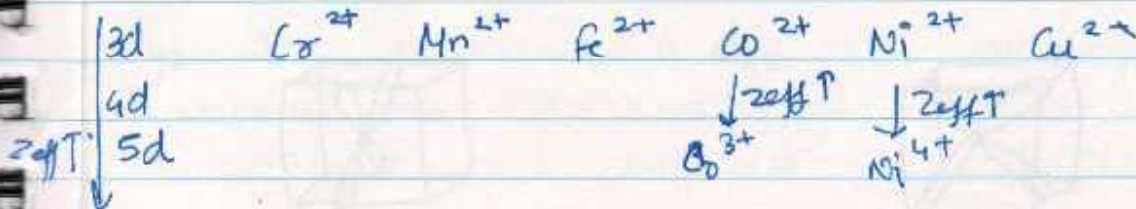 3d Cr2+ Mn2+ Fe2+ Co2+ Ni2+ Cu2+
4d Zeff↑ Zeff↑
Zeff↑ 5d Co3+ Ni4+